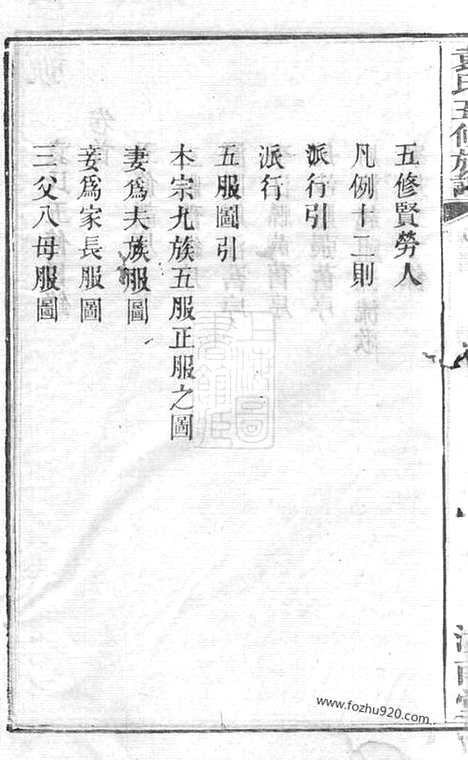 五修賢勞人
凡例十二則
派行引
派行
五服圖引
本宗九族五服正服之圖
妻爲夫族服圖
妾爲家長服圖
三父八母服圖
氏五修族譜
www.fozhu920.com